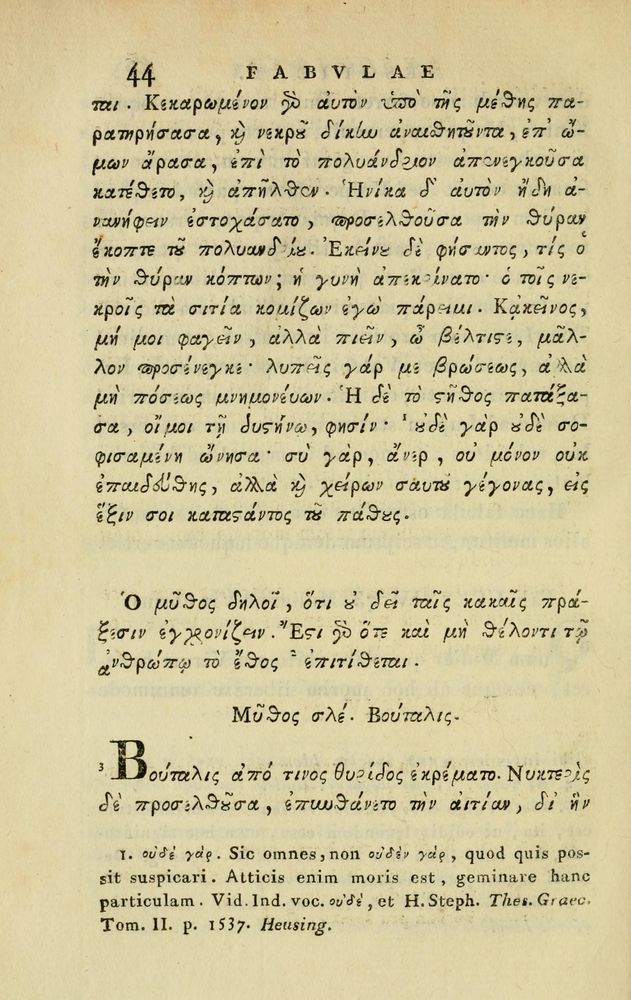 44 FABVLAE
ται. Κεκαρωμένον γὸ αὐτὸν ὑπὸ τῆς μέθης πα-
ρατηρήσασα, ϗ νεκροῦ δίκην ἀναισθητοῦντα, ἐπ' ὤ-
μων ἄρασα, ἐπὶ τὸ πολυάνδριον ἀπενεγκοῦσα
κατέθετο, ϗ ἀπῆλθεν. Ἡνίκα δ' αὐτὸν ἤδη ἀ-
νανήφειν ἐστοχάσατο, προσελθοῦσα τὴν θύραν
ἔκοπτε τοῦ πολυανδρίου. Ἐκείνου δὲ φήσαντος, τίς ὁ
τὴν θύραν κόπτων; ἡ γυνὴ ἀπεκρίνατο· ὁ τοῖς νε-
κροῖς τὰ σιτία κομίζων ἐγὼ πάρειμι. Κᾀκεῖνος,
μή μοι φαγεῖν, ἀλλὰ πιεῖν, ὦ βέλτιστε, μᾶλ-
λον προσένεγκε· λυπεῖς γάρ με βρώσεως, ἀλλὰ
μὴ πόσεως μνημονεύων. Ἡ δὲ τὸ στῆθος πατάξα-
σα, οἴμοι τῇ δυστήνῳ, φησίν· ¹ οὐδὲ γὰρ οὐδὲ σο-
φισαμένη ὤνησα· σὺ γὰρ, ἄνερ, οὐ μόνον οὐκ
ἐπαιδεύθης, ἀλλὰ ϗ χείρων σαυτοῦ γέγονας, εἰς
ἕξιν σοι καταστάντος τοῦ πάθους.
Ὁ μῦθος δηλοῖ, ὅτι οὐ δεῖ ταῖς κακαῖς πρά-
ξεσιν ἐγχρονίζειν. Ἔστι γὸ ὅτε καὶ μὴ θέλοντι τῷ
ἀνθρώπῳ τὸ ἔθος ² ἐπιτίθεται.
Μῦθος σλέ. Βούταλις.
³ Βούταλις ἀπό τινος θυρίδος ἐκρέματο. Νυκτερὶς
δὲ προσελθοῦσα, ἐπυνθάνετο τὴν αἰτίαν, δι' ἣν
1. οὐδὲ γάρ. Sic omnes, non οὐδὲν γάρ, quod quis pos-
sit suspicari. Atticis enim moris est, geminare hanc
particulam. Vid. Ind. voc. οὐδὲ, et H. Steph. Thes. Graec.
Tom. II. p. 1537. Heusing.